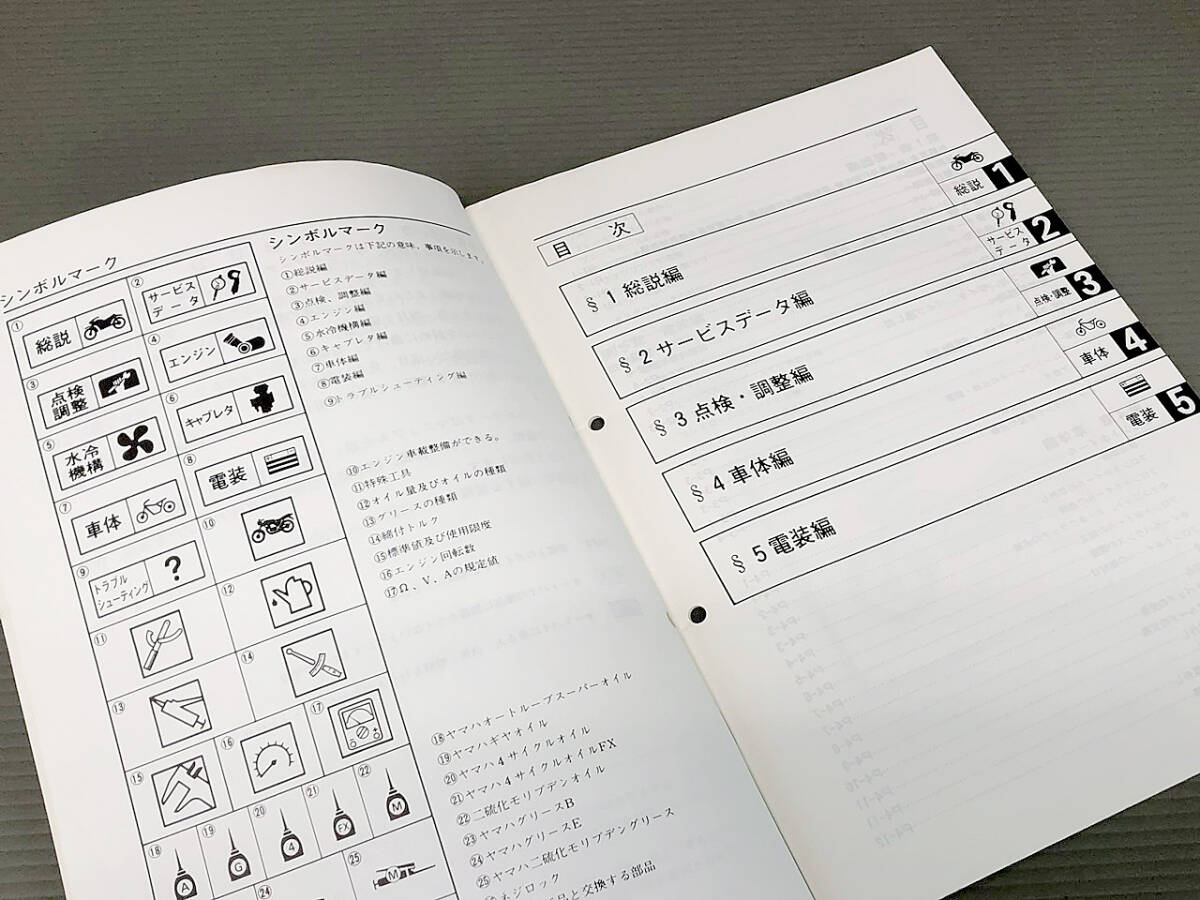 シンボルマーク
① 総説
② サービスデータ
③ 点検調整
④ エンジン
⑤ 水冷機構
⑥ キャブレタ
⑦ 車体
⑧ 電装
⑨ トラブルシューティング
⑩
⑪
⑫
⑬
⑭
⑮
⑯
⑰
⑱ A
⑲ G
⑳ 4
㉑ FX
㉒ M
㉔
㉕ M
シンボルマーク
シンボルマークは下記の意味、事項を示します。
①総説編
②サービスデータ編
③点検、調整編
④エンジン編
⑤水冷機構編
⑥キャブレタ編
⑦車体編
⑧電装編
⑨トラブルシューティング編
⑩エンジン車載整備ができる。
⑪特殊工具
⑫オイル量及びオイルの種類
⑬グリースの種類
⑭締付トルク
⑮標準値及び使用限度
⑯エンジン回転数
⑰Ω、V、Aの規定値
⑱ヤマハオートルーブスーパーオイル
⑲ヤマハギヤオイル
⑳ヤマハ4サイクルオイル
㉑ヤマハ4サイクルオイルFX
㉒二硫化モリブデンオイル
㉓ヤマハグリースB
㉔ヤマハグリースE
㉕ヤマハ二硫化モリブデングリース
ネジロック
品と交換する部品
目 次
§1 総説編
§2 サービスデータ編
§3 点検・調整編
§4 車体編
§5 電装編
総説 1
サービスデータ 2
点検・調整 3
車体 4
電装 5